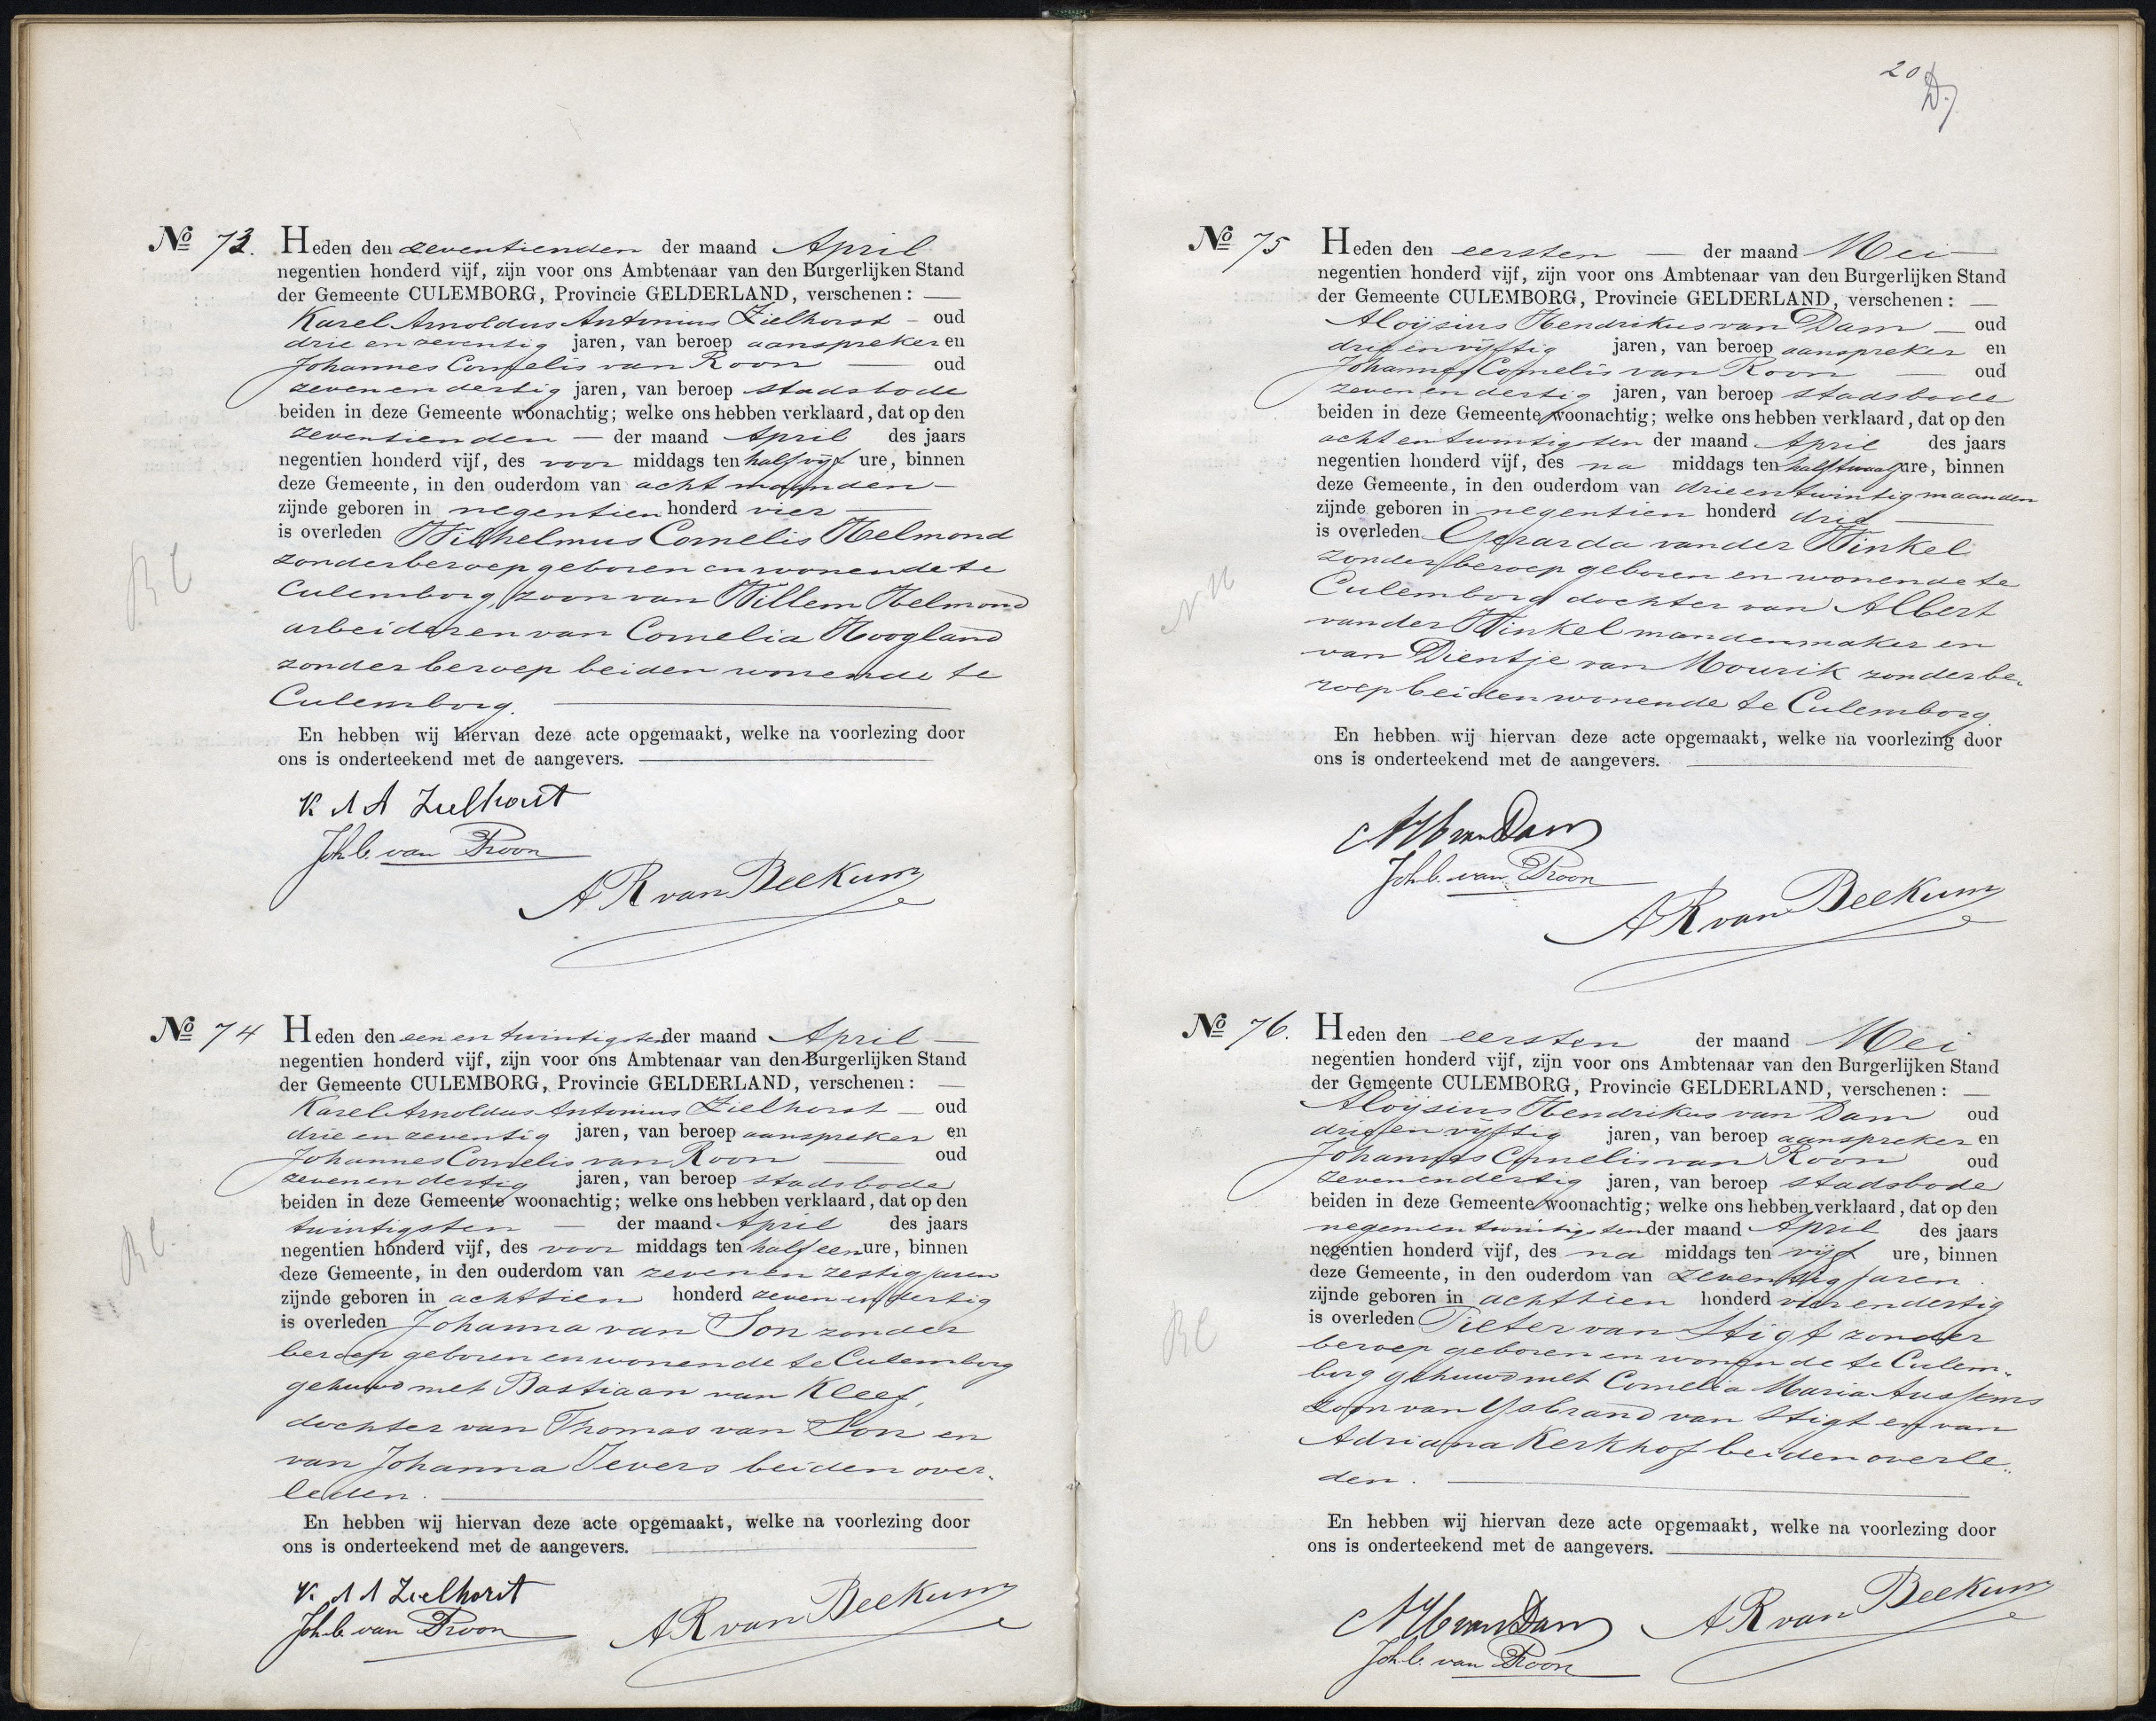 No 73. Heden den zeventienden der maand April
negentien honderd vijf, zijn voor ons Ambtenaar van den Burgerlijken Stand
der Gemeente CULEMBORG, Provincie GELDERLAND, verschenen: —
Karel Arnoldus Antonius Zielhorst — oud
drie en zeventig jaren, van beroep aanspreker en
Johannes Cornelis van Roon — oud
zeven en dertig jaren, van beroep stadsbode
beiden in deze Gemeente woonachtig; welke ons hebben verklaard, dat op den
zeventienden — der maand April des jaars
negentien honderd vijf, des voor middags ten half vijf ure, binnen
deze Gemeente, in den ouderdom van acht maanden —
zijnde geboren in negentien honderd vier —
is overleden Wilhelmus Cornelis Helmond
zonder beroep geboren en wonende te
Culemborg, zoon van Willem Helmond
arbeider en van Cornelia Hoogland
zonder beroep beiden wonende te
Culemborg. —
En hebben wij hiervan deze acte opgemaakt, welke na voorlezing door
ons is onderteekend met de aangevers. —
K A A Zielhorst
Joh C. van Roon
A R van Beekum
RC
No 74 Heden den een en twintigsten der maand April —
negentien honderd vijf, zijn voor ons Ambtenaar van den Burgerlijken Stand
der Gemeente CULEMBORG, Provincie GELDERLAND, verschenen: —
Karel Arnoldus Antonius Zielhorst — oud
drie en zeventig jaren, van beroep aanspreker en
Johannes Cornelis van Roon — oud
zeven en dertig jaren, van beroep stadsbode
beiden in deze Gemeente woonachtig; welke ons hebben verklaard, dat op den
twintigsten — der maand April des jaars
negentien honderd vijf, des voor middags ten half een ure, binnen
deze Gemeente, in den ouderdom van zeven en zestig jaren
zijnde geboren in achttien honderd zeven en dertig
is overleden Johanna van Son zonder
beroep geboren en wonende te Culemborg
gehuwd met Bastiaan van Kleef,
dochter van Thomas van Son en
van Johanna Jevers beiden over-
leden. —
En hebben wij hiervan deze acte opgemaakt, welke na voorlezing door
ons is onderteekend met de aangevers. —
K. A A Zielhorst
Joh C. van Roon
A R van Beekum
RC.
20
No 75 Heden den eersten — der maand Mei —
negentien honderd vijf, zijn voor ons Ambtenaar van den Burgerlijken Stand
der Gemeente CULEMBORG, Provincie GELDERLAND, verschenen: —
Aloijsius Hendrikus van Dam — oud
drie en vijftig jaren, van beroep aanspreker en
Johannes Cornelis van Roon — oud
zeven en dertig jaren, van beroep stadsbode
beiden in deze Gemeente woonachtig; welke ons hebben verklaard, dat op den
acht en twintigsten der maand April des jaars
negentien honderd vijf, des na middags ten half twaalf ure, binnen
deze Gemeente, in den ouderdom van drie en twintig maanden
zijnde geboren in negentien honderd drie —
is overleden Gerarda van der Winkel
zonder beroep geboren en wonende te
Culemborg dochter van Albert
van der Winkel mandenmaker en
van Dientje van Mourik zonder be-
roep beiden wonende te Culemborg.
En hebben wij hiervan deze acte opgemaakt, welke na voorlezing door
ons is onderteekend met de aangevers. —
A H van Dam
Joh C. van Roon
A R van Beekum
No 76. Heden den eersten der maand Mei
negentien honderd vijf, zijn voor ons Ambtenaar van den Burgerlijken Stand
der Gemeente CULEMBORG, Provincie GELDERLAND, verschenen: —
Aloijsius Hendrikus van Dam oud
drie en vijftig jaren, van beroep aanspreker en
Johannes Cornelis van Roon oud
zeven en dertig jaren, van beroep stadsbode
beiden in deze Gemeente woonachtig; welke ons hebben verklaard, dat op den
negen en twintigsten der maand April des jaars
negentien honderd vijf, des na middags ten vijf ure, binnen
deze Gemeente, in den ouderdom van zeventig jaren.
zijnde geboren in achttien honderd vier en dertig
is overleden Pieter van Stigt zonder
beroep geboren en wonende te Culem-
borg gehuwd met Cornelia Maria Aussems
zoon van Ysbrand van Stigt en van
Adriana Kerkhof beiden overle-
den. —
En hebben wij hiervan deze acte opgemaakt, welke na voorlezing door
ons is onderteekend met de aangevers. —
A H van Dam
A R van Beekum
Joh C. van Roon
RC